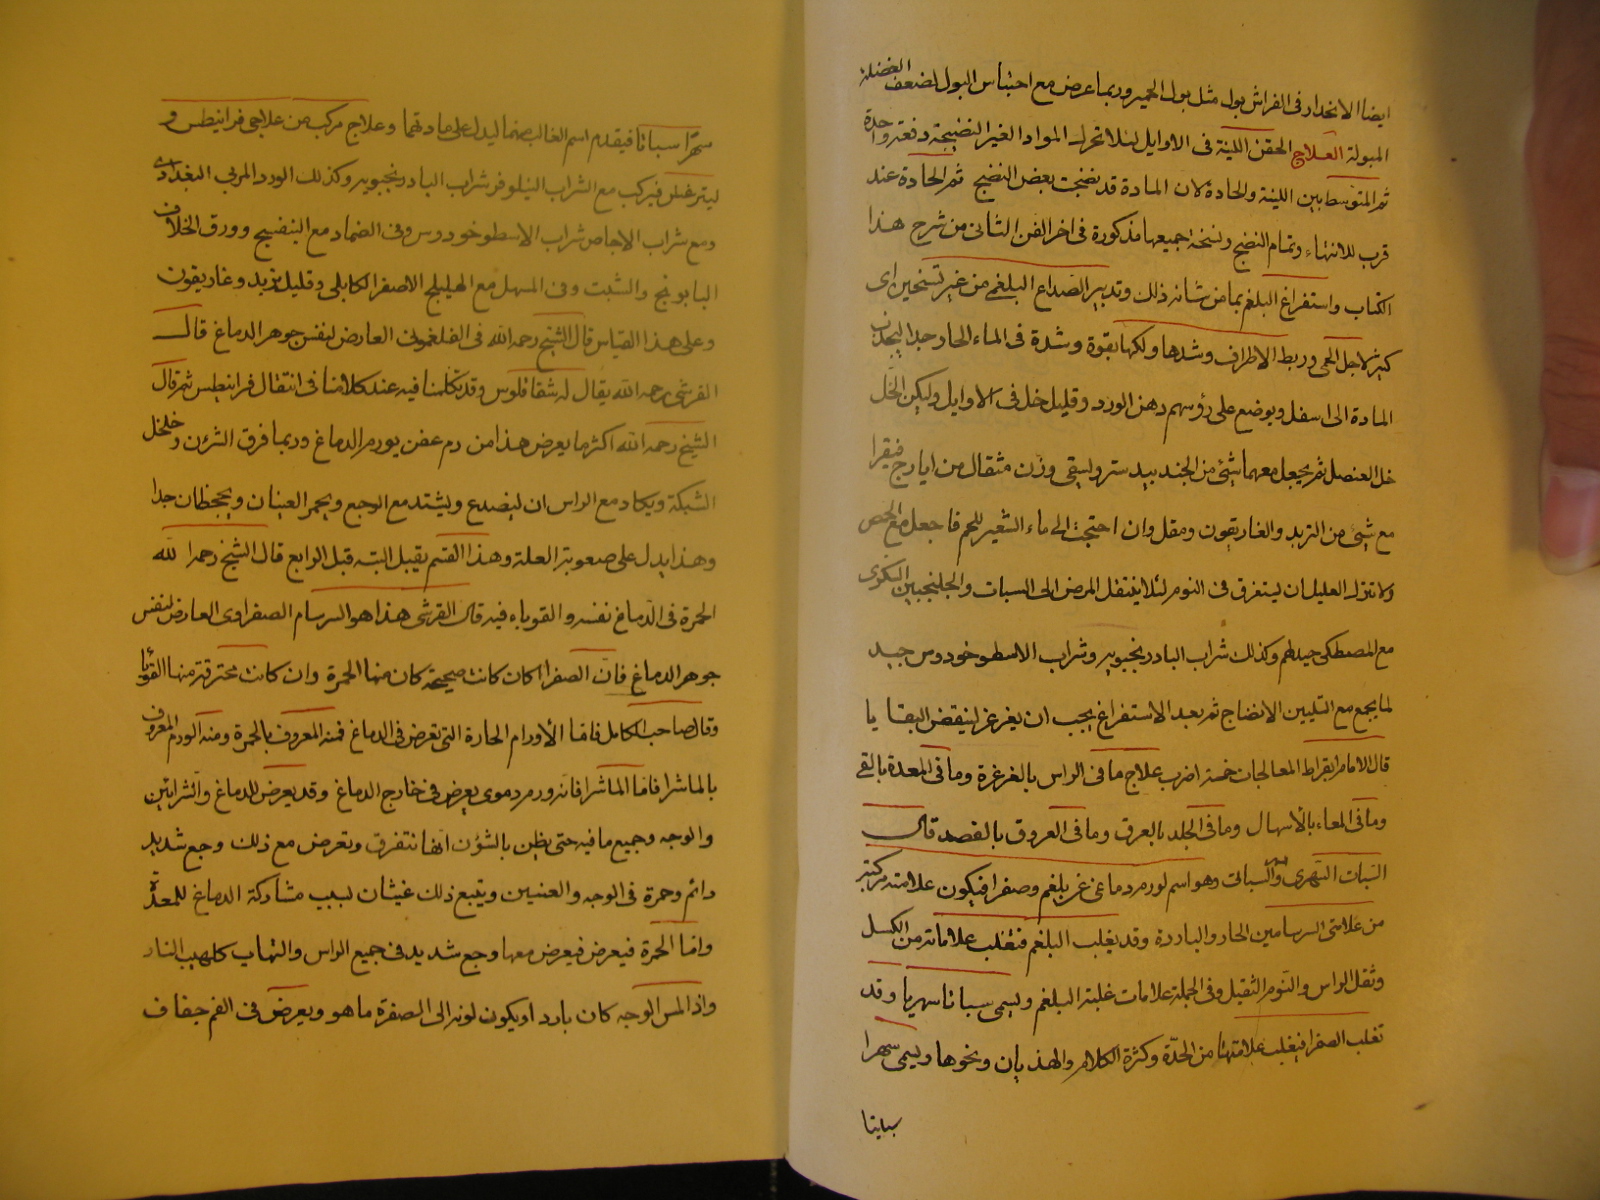 ايضا الانحدار فى الفراش بول مثل بول الحمير وربما عرض مع احتباس البول لضعف العضلة
المبولة العلاج الحقن اللينة فى الاوايل لئلا تحرك المواد الغير النضيجة دفعة واحدة
ثم المتوسط بين اللينة والحادة لان المادة قد نضجت بعض النضج ثم الحادة عند
قرب للانتهاء وتمام النضج ونسخة جميعها مذكورة فى اخر الفن الثانى من شرح هذا
الكتاب واستفراغ البلغم بما من شانه ذلك وتدبير الصداع البلغمى من غير تسخين اى
كثير لاجل الحمى وربط الاطراف وشدها ولكها بقوة وشدة فى الماء الحار جدا ليجذب
المادة الى اسفل ويوضع على رؤسهم دهن الورد وقليل خل فى الاوايل وليكن الخل
خل العنصل ثم يجعل معهما شئ من الجندبيدستر وليسقى وزن مثقال من ايارج فيقرا
مع شئ من التربد والغاريقون ومقل وان احتجت الى ماء الشعير للحم فاجعل مع الحمص
ولا تترك العليل ان يستغرق فى النوم لئلا ينتقل المرض الى السبات والجلنجبين السكرى
مع المصطكى جيد لهم وكذلك شراب البادرنجبويه وشراب الاسطوخودوس جيد
لما يجمع مع التليين الانضاج ثم بعد الاستفراغ يجب ان يغرغر لينقض البقايا
قال الامام ابقراط المعالجات خمسة اضرب علاج ما فى الراس بالغرغرة وما فى المعدة بالقى
وما فى المعاء بالأسهال وما فى الجلد بالعرق وما فى العروق بالفصد قال
السبات السهرى والسباتى وهو اسم لورم دماغى عن بلغم وصفرا فيكون علامته مركبة
من علامتى السرسامين الحار والباردة وقد يغلب البلغم فتغلب علاماته من الكسل
وثقل الراس والنوم الثقيل وفى الجملة علامات غلبة البلغم ويسمى سباتا سهريا وقد
تغلب الصفرا فيغلب علامتها من الحدة وكثرة الكلام والهذيان ونحوها ويسمى سهرا
سباتيا
سهرا سباتا فيقدم اسم الغالب منهما ليدل على مادتهما وعلاج مركب من علاجى فرانيطس و
ليترغس فيركب مع الشراب النيلوفر شراب البادرنجبويه وكذلك الورد المربى البغدادى
ومع شراب الاجاص شراب الاسطوخودوس وفى الضماد مع البنفسج وورق الخلاف
البابونج والشبت وفى المسهل مع الهليلج الاصفر الكابلى وقليل تربد وغاريقون
وعلى هذا القياس قال الشيخ رحمه الله فى الفلغمونى العارض لنفس جوهر الدماغ قال
القرشى رحمه الله يقال له شقاقلوس وقد تكلمنا فيه عند كلامنا فى انتقال فرانيطس ثم قال
الشيخ رحمه الله اكثر ما يعرض هذا من دم عفن يورم الدماغ وربما فرق الشؤن وخلخل
الشبكة ويكاد مع الراس ان ليصدع ويشتد مع الوجع ويحمر العينان ويجحظان جدا
وهذا يدل على صعوبة العلة وهذا القسم يقبل البتة قبل الرابع قال الشيخ رحمه الله
الحمرة فى الدماغ نفسه والقوباء فيه قال القرشى هذا هو السرسام الصفراوى العارض لنفس
جوهر الدماغ فان الصفرا كان كانت صحيحة كان منها الحمرة وان كانت محترقة منها القوبا
وقال صاحب الكامل فاما الأورام الحارة التى تعرض فى الدماغ فمنه المعروف بالحمرة ومنه الورم المعروف
بالماشرا فاما الماشرا فانه ورم دموى يعرض فى خارج الدماغ وقد يعرض للدماغ والشرائين
والوجه وجميع ما فيه حتى يظن بالشؤن انها تتفرق وتعرض مع ذلك وجع شديد
دائم وحمرة فى الوجه والعينين ويتبع ذلك غيثان لسبب مشاركة الدماغ للمعدة
واما الحمرة فيعرض فيعرض معها وجع شديد فى جميع الراس والتهاب كلهيب النار
واذا لمس الوجه كان بارد او يكون لونه الى الصفرة ما هو ويعرض فى الفم جفاف